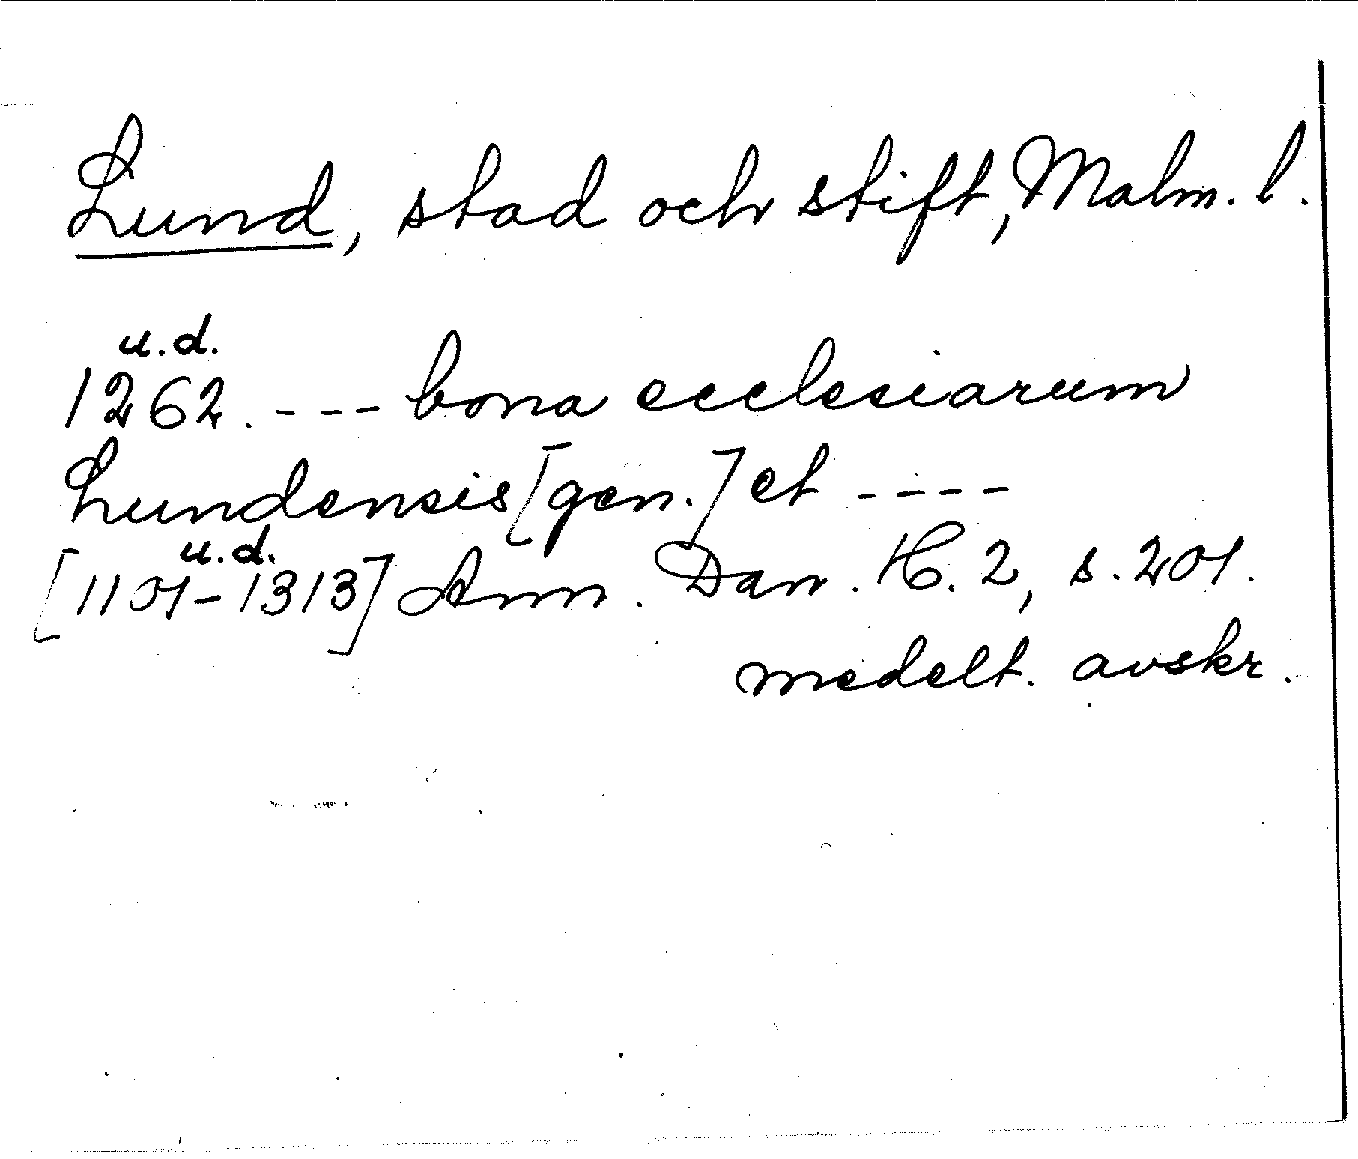 Lund, stad och stift, Malm. l.
u.d.
1262. --- bona ecclesiarum
Lundensis [gen.] et ----
u.d.
[1101-1313] Ann. Dan. H. 2, s. 201.
medelt. avskr.